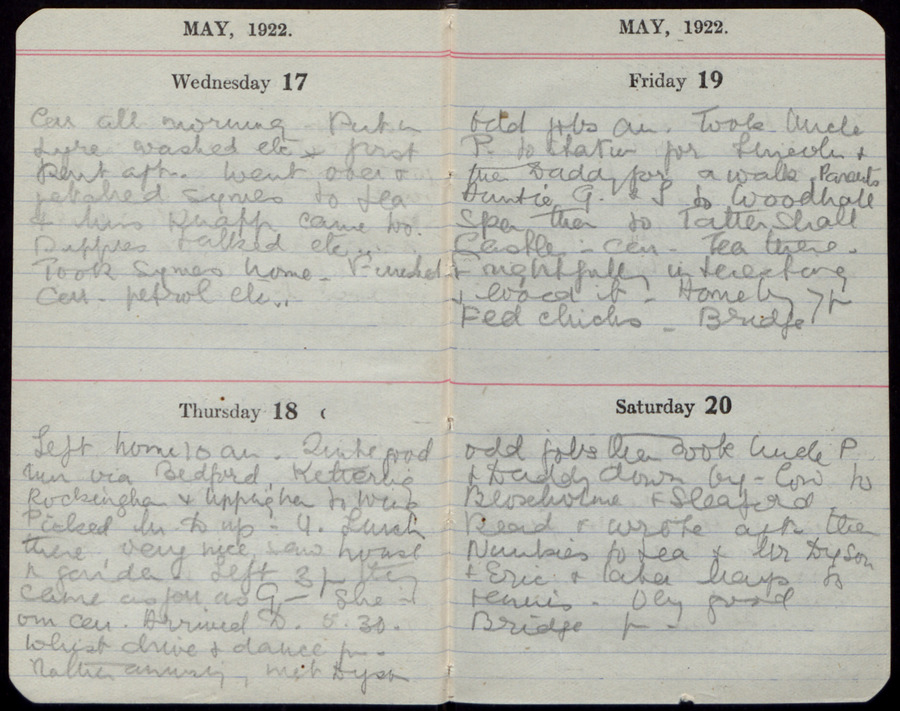 MAY, 1922.
Wednesday 17
Car all morning - Put in
tyre washed etc & first
part aft. Went over &
fetched Symes to tea
& Miss Knapp came too.
Puppies talked etc...
Took Symes home - Finished
Car - petrol etc..
Thursday 18
Left home 10 am. Quite good
run via Bedford, Kettering
Rockingham & Uppingham to
Picked up - Lunch
there very nice, saw house
& garden. Left 3 pm they
came as far as G - She
own car. Arrived D. 5.30.
Whist drive & dance pm -
Rather amusing, met Dyson
MAY, 1922.
Friday 19
odd jobs am. Took Uncle
P. to station for Lincoln &
then Daddy for a walk, Parents
Auntie G. & I to Woodhall
Spa then to Tattershall
Castle - car - Tea there -
frightfully interesting
& loved it - Home by 7 pm
Fed chicks - Bridge
Saturday 20
odd jobs then took Uncle P
& Daddy down by - Low to
Bloxholme & Sleaford
Read & wrote aft. then
Nunkies to tea & Mr Dyson
& Eric & later Mays to
tennis - Very good
Bridge pm -